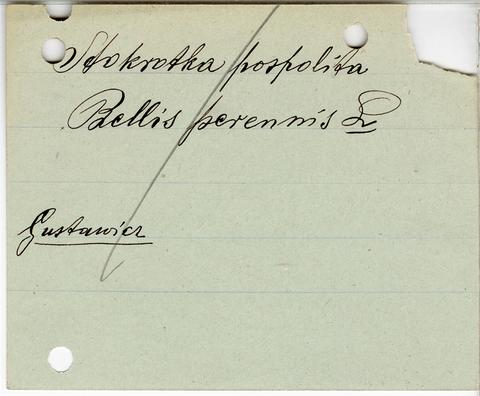 Stokrotka pospolita
Bellis perennis L
Gustawicz